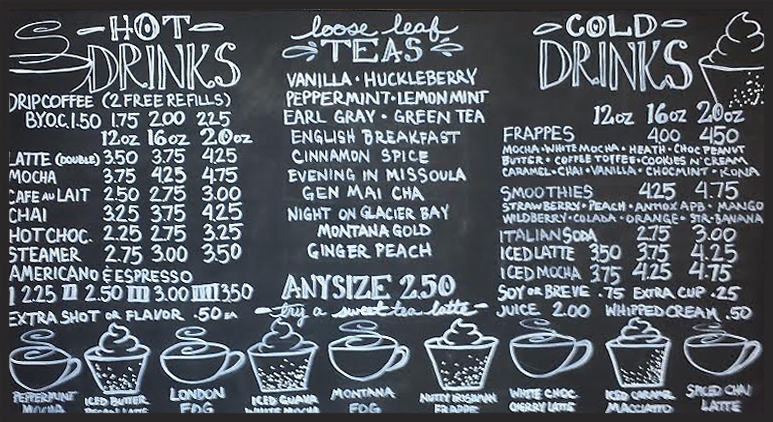 HOT
DRINKS
DRIPCOFFEE (2 FREE REFILLS)
B.Y.O.C. 1.50 1.75 2.00 2.25
12oz 16oz 20oz
LATTE (DOUBLE) 3.50 3.75 4.25
MOCHA 3.75 4.25 4.75
CAFE AU LAIT 2.50 2.75 3.00
CHAI 3.25 3.75 4.25
HOT CHOC. 2.25 2.75 3.25
STEAMER 2.75 3.00 3.50
AMERICANO & ESPRESSO
I 2.25 II 2.50 III 3.00 IIII 3.50
EXTRA SHOT OR FLAVOR .50 EA
loose leaf
TEAS
VANILLA • HUCKLEBERRY
PEPPERMINT • LEMON MINT
EARL GRAY • GREEN TEA
ENGLISH BREAKFAST
CINNAMON SPICE
EVENING IN MISSOULA
GEN MAI CHA
NIGHT ON GLACIER BAY
MONTANA GOLD
GINGER PEACH
ANY SIZE 2.50
try a sweet tea latte
COLD
DRINKS
12oz 16oz 20oz
FRAPPES 4.00 4.50
MOCHA • WHITE MOCHA • HEATH • CHOC PEANUT
BUTTER • COFFEE TOFFEE • COOKIES N' CREAM
CARAMEL • CHAI • VANILLA • CHOCMINT • KONA
SMOOTHIES 4.25 4.75
STRAWBERRY • PEACH • ANTIOX APB • MANGO
WILDBERRY • COLADA • ORANGE • STR-BANANA
ITALIAN SODA 2.75 3.00
ICED LATTE 3.50 3.75 4.25
ICED MOCHA 3.75 4.25 4.75
SOY OR BREVE .75 EXTRA CUP .25
JUICE 2.00 WHIPPED CREAM .50
PEPPERMINT MOCHA
ICED BUTTER PECAN LATTE
LONDON FOG
ICED GUAVA WHITE MOCHA
MONTANA FOG
NUTTY IRISHMAN FRAPPE
WHITE CHOC CHERRY LATTE
ICED CARAMEL MACCIATTO
SPICED CHAI LATTE